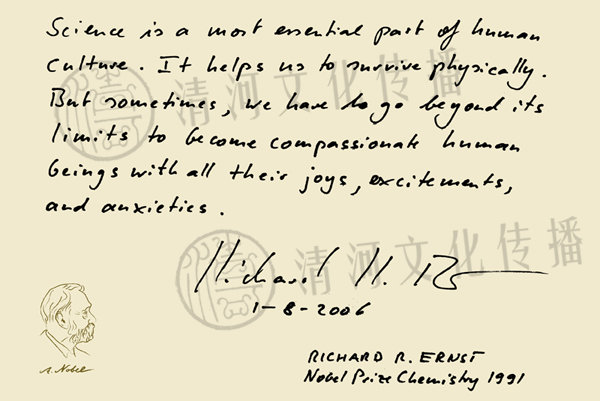 Science is a most essential part of human
culture. It helps us to survive physically.
But sometimes, we have to go beyond its
limits to become compassionate human
beings with all their joys, excitements,
and anxieties.
清河文化传播
清河文化传播
Richard R. Ernst
1-8-2006
A. Nobel
RICHARD R. ERNST
Nobel Prize Chemistry 1991